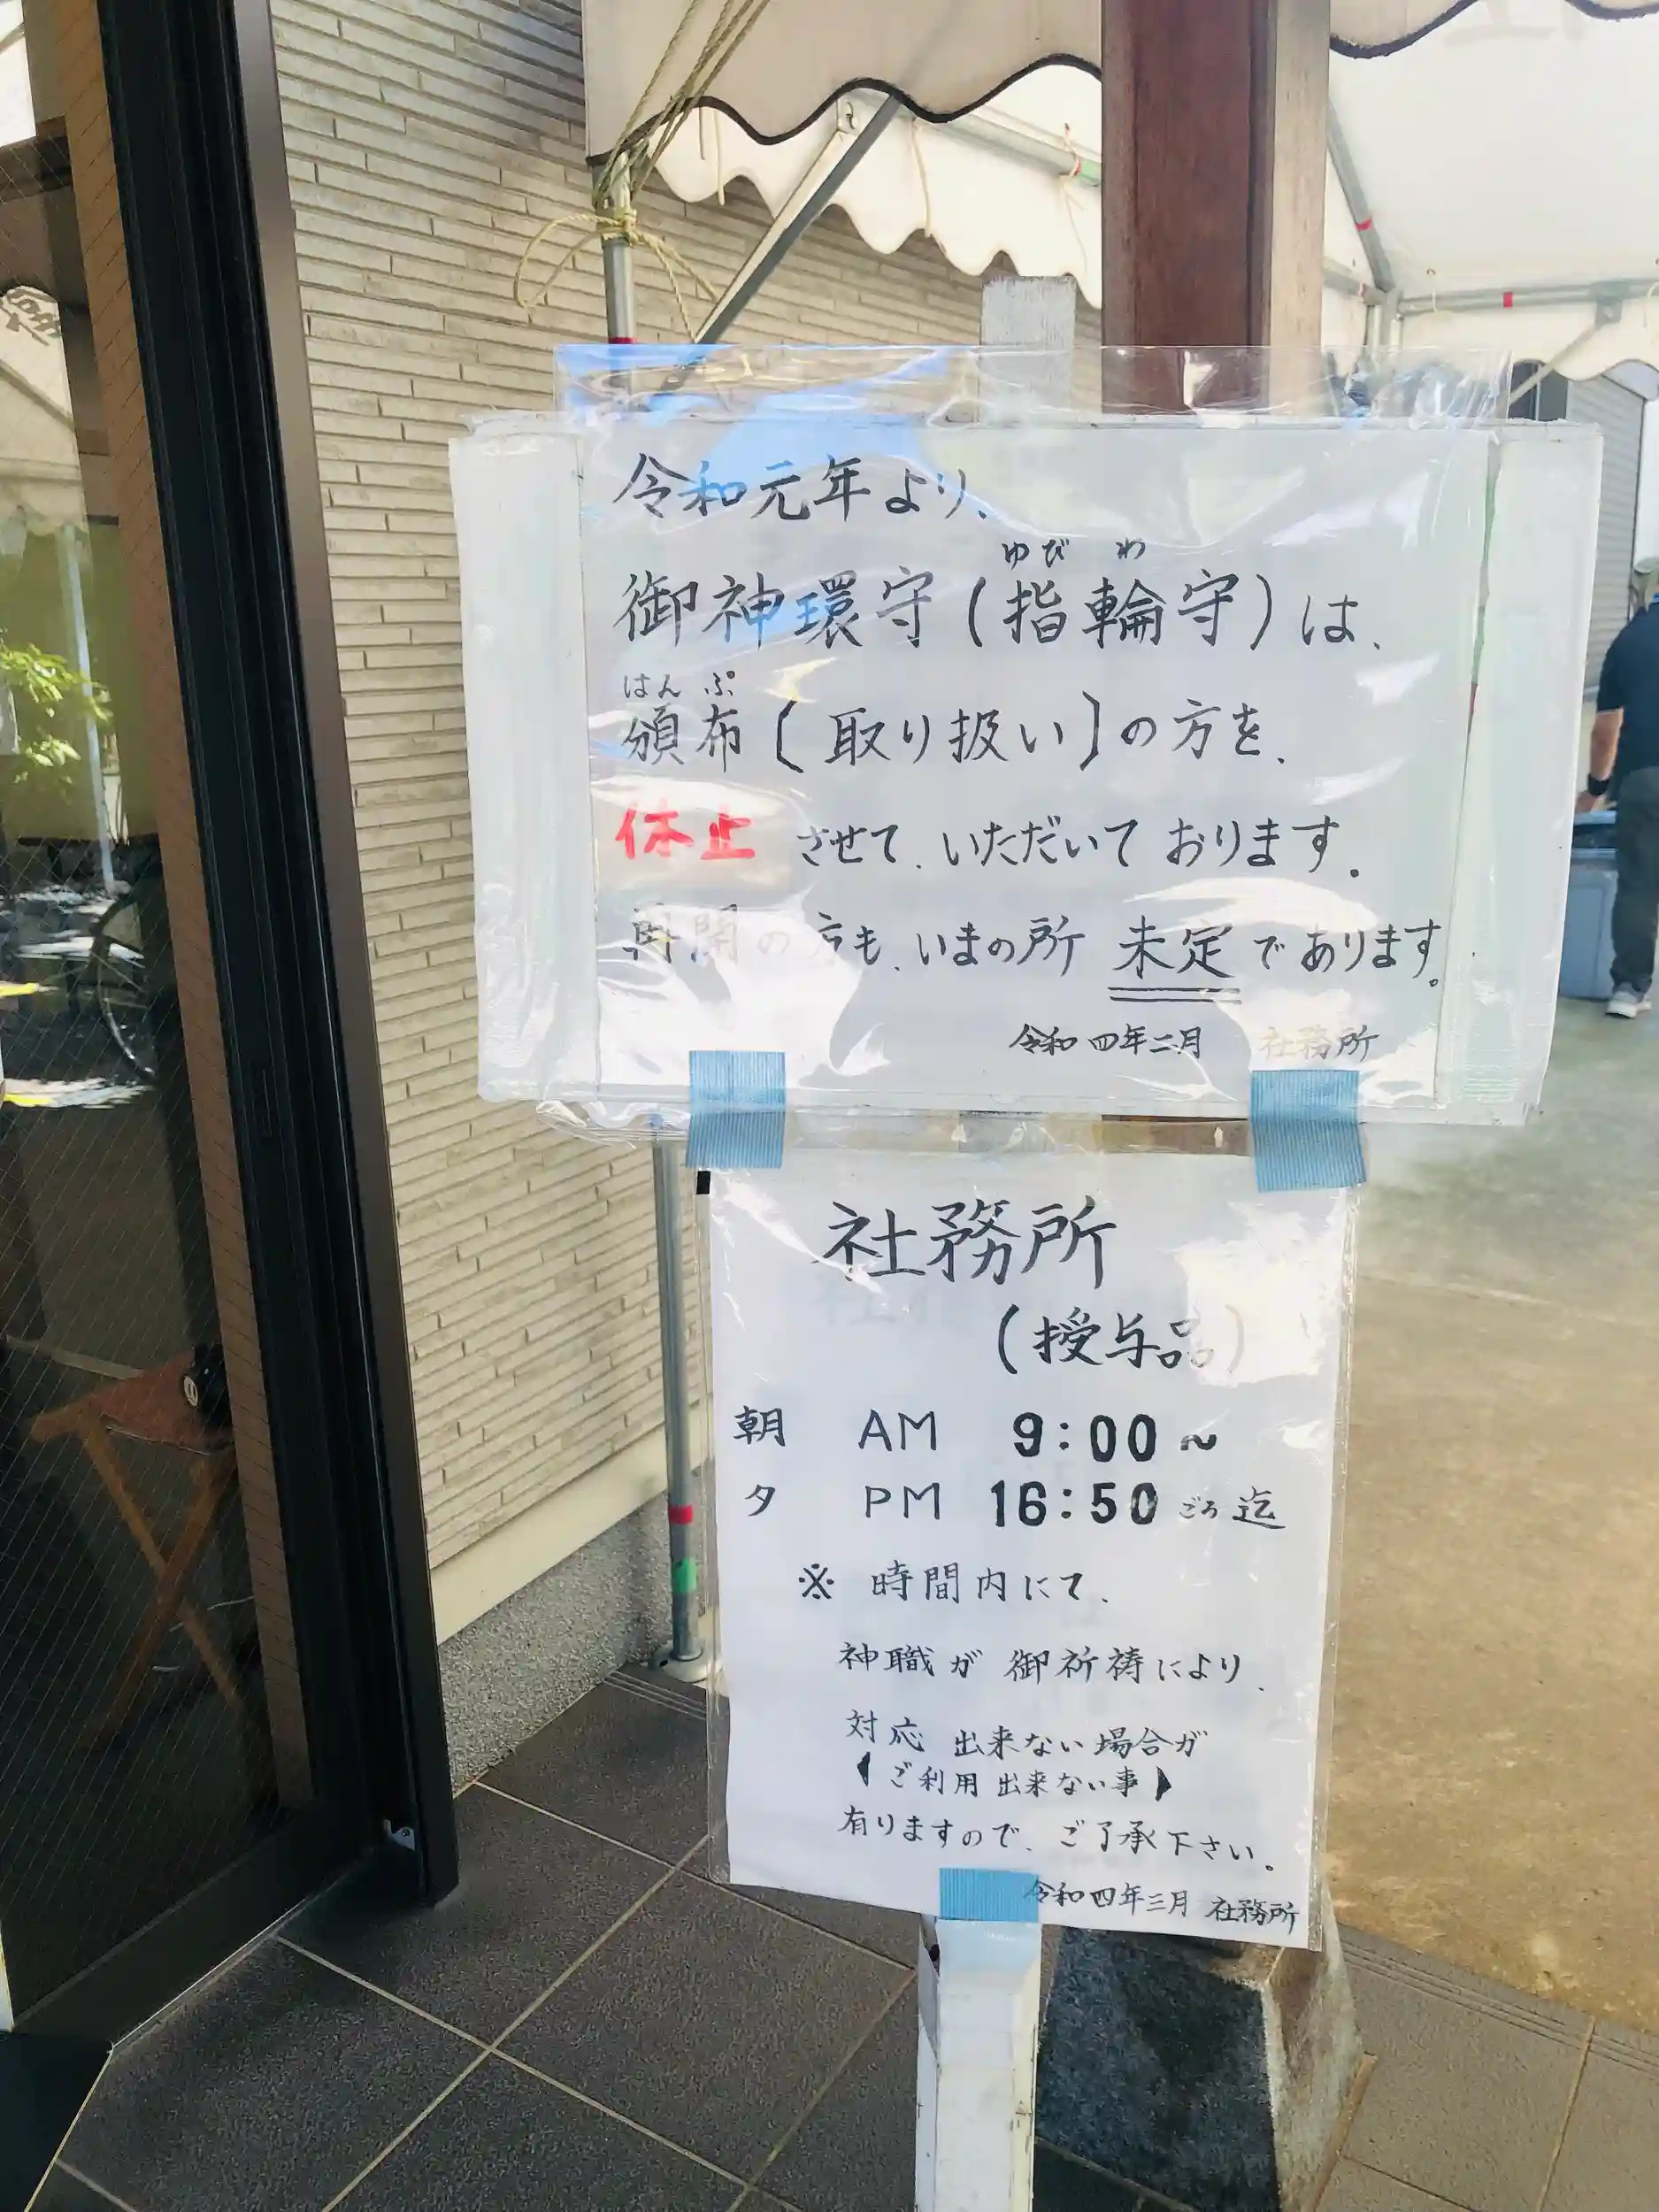 令和元年より、
ゆびわ
御神環守(指輪守)は、
はんぷ
頒布〔取り扱い〕の方を、
休止させて、いただいております。
再開の方も、いまの所 未定であります。
令和四年二月 社務所
社務所
(授与品)
朝 AM 9:00~
夕 PM 16:50ごろ迄
※ 時間内にて、
神職が御祈祷により、
対応出来ない場合が
(ご利用出来ない事)
有りますので、ご了承下さい。
令和四年三月 社務所